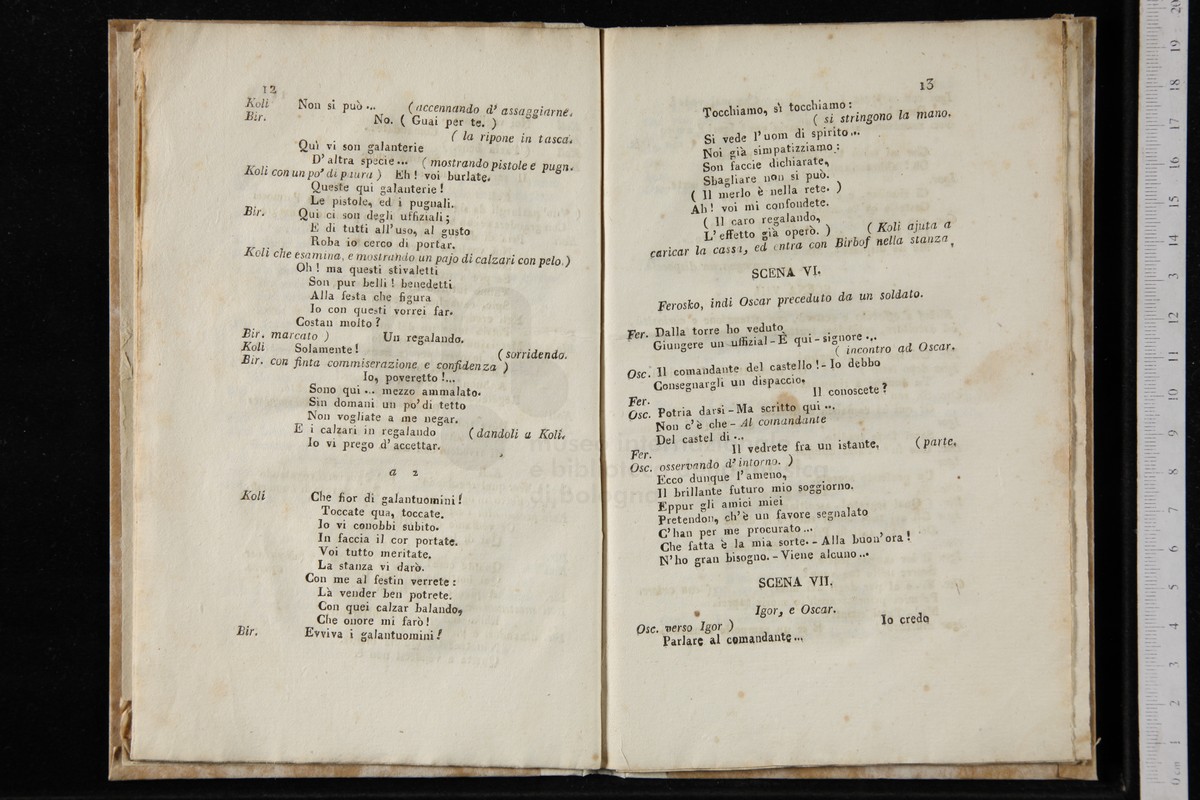 12
Koli Non si può ... ( accennando d' assaggiarne.
Bir. No. ( Guai per te. )
( la ripone in tasca.
Quì vi son galanterie
D' altra specie ... ( mostrando pistole e pugn.
Koli con un po' di paura ) Eh ! voi burlate.
Queste qui galanterie !
Le pistole, ed i pugnali.
Bir. Qui ci son degli uffiziali ;
E di tutti all' uso, al gusto
Roba io cerco di portar.
Koli che esamina, e mostrando un pajo di calzari con pelo.)
Oh ! ma questi stivaletti
Son pur belli ! benedetti
Alla festa che figura
Io con questi vorrei far.
Costan molto ?
Bir. marcato ) Un regalando.
Koli Solamente ! ( sorridendo.
Bir. con finta commiserazione e confidenza )
Io, poveretto !...
Sono qui ... mezzo ammalato.
Sin domani un po' di tetto
Non vogliate a me negar.
E i calzari in regalando ( dandoli a Koli.
Io vi prego d' accettar.
a 2
Koli Che fior di galantuomini !
Toccate qua, toccate.
Io vi conobbi subito.
In faccia il cor portate.
Voi tutto meritate.
La stanza vi darò.
Con me al festin verrete :
Là vender ben potrete.
Con quei calzar balando,
Che onore mi farò !
Bir. Evviva i galantuomini !
13
Tocchiamo, sì tocchiamo :
( si stringono la mano.
Si vede l' uom di spirito ...
Noi già simpatizziamo :
Son faccie dichiarate,
Sbagliare non si può.
( Il merlo è nella rete. )
Ah ! voi mi confondete.
( Il caro regalando,
L' effetto già operò. ) ( Koli ajuta a
caricar la cassa, ed entra con Birbof nella stanza,
SCENA VI.
Ferosko, indi Oscar preceduto da un soldato.
Fer. Dalla torre ho veduto
Giungere un uffizial - E qui - signore ...
( incontro ad Oscar.
Osc. Il comandante del castello ! - Io debbo
Consegnargli un dispaccio.
Fer. Il conoscete ?
Osc. Potria darsi - Ma scritto qui ...
Non c' è che - Al comandante
Del castel di ...
Fer. Il vedrete fra un istante. ( parte.
Osc. osservando d' intorno. )
Ecco dunque l' ameno,
Il brillante futuro mio soggiorno.
Eppur gli amici miei
Pretendon, ch' è un favore segnalato
C' han per me procurato ...
Che fatta è la mia sorte. - Alla buon' ora !
N' ho gran bisogno. - Viene alcuno ...
SCENA VII.
Igor, e Oscar.
Osc. verso Igor ) Io credo
Parlare al comandante ...